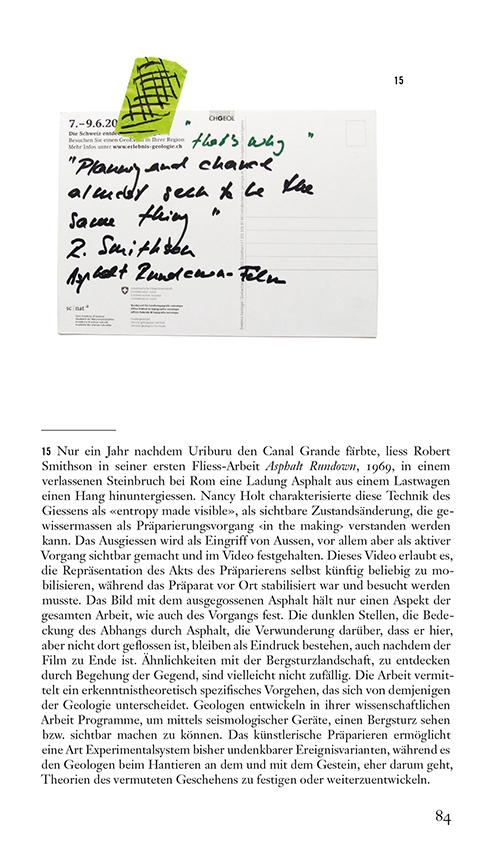 15
7.–9.6.20
CHGEOL
Die Schweiz entdec
Besuchen Sie einen Geo in Ihrer Region
Mehr Infos unter www.erlebnis-geologie.ch
"that's why"
"Planning and chance
almost seem to be the
same thing"
R. Smithson
Asphalt Rundown-Film
sc | nat
15 Nur ein Jahr nachdem Uriburu den Canal Grande färbte, liess Robert
Smithson in seiner ersten Fliess-Arbeit Asphalt Rundown, 1969, in einem
verlassenen Steinbruch bei Rom eine Ladung Asphalt aus einem Lastwagen
einen Hang hinuntergiessen. Nancy Holt charakterisierte diese Technik des
Giessens als «entropy made visible», als sichtbare Zustandsänderung, die ge-
wissermassen als Präparierungsvorgang ‹in the making› verstanden werden
kann. Das Ausgiessen wird als Eingriff von Aussen, vor allem aber als aktiver
Vorgang sichtbar gemacht und im Video festgehalten. Dieses Video erlaubt es,
die Repräsentation des Akts des Präparierens selbst künftig beliebig zu mo-
bilisieren, während das Präparat vor Ort stabilisiert war und besucht werden
musste. Das Bild mit dem ausgegossenen Asphalt hält nur einen Aspekt der
gesamten Arbeit, wie auch des Vorgangs fest. Die dunklen Stellen, die Bede-
ckung des Abhangs durch Asphalt, die Verwunderung darüber, dass er hier,
aber nicht dort geflossen ist, bleiben als Eindruck bestehen, auch nachdem der
Film zu Ende ist. Ähnlichkeiten mit der Bergsturzlandschaft, zu entdecken
durch Begehung der Gegend, sind vielleicht nicht zufällig. Die Arbeit vermit-
telt ein erkenntnistheoretisch spezifisches Vorgehen, das sich von demjenigen
der Geologie unterscheidet. Geologen entwickeln in ihrer wissenschaftlichen
Arbeit Programme, um mittels seismologischer Geräte, einen Bergsturz sehen
bzw. sichtbar machen zu können. Das künstlerische Präparieren ermöglicht
eine Art Experimentalsystem bisher undenkbarer Ereignisvarianten, während es
den Geologen beim Hantieren an dem und mit dem Gestein, eher darum geht,
Theorien des vermuteten Geschehens zu festigen oder weiterzuentwickeln.
84